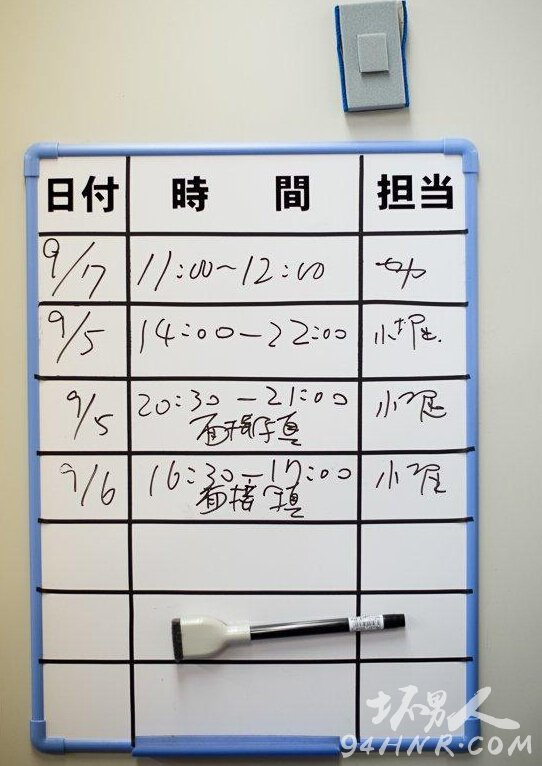 日付 時間 担当
9/17 11:00~12:00
9/5 14:00-22:00 小堀
9/5 20:30-21:00 小堀
面接写真
9/6 16:30-17:00 小堀
面接写真
坏男人
94HNR.COM